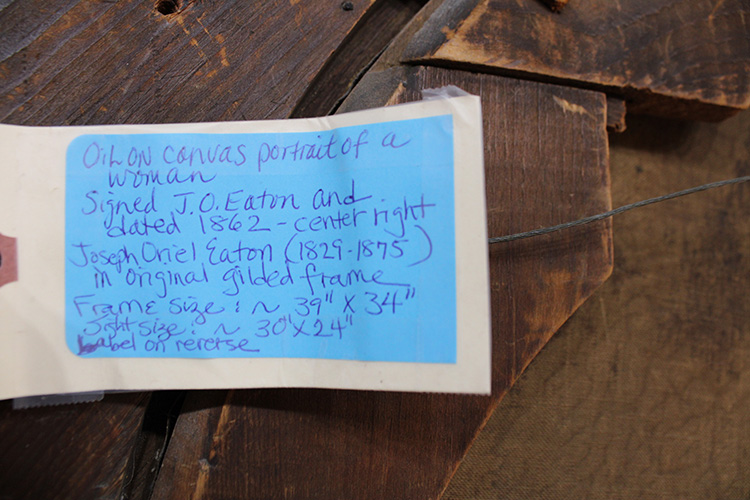 Oil on canvas portrait of a
woman
Signed J.O. Eaton and
dated 1862 - center right
Joseph Oriel Eaton (1829-1875)
in original gilded frame
Frame size: ~ 39" x 34"
Sight size: ~ 30" x 24"
Label on reverse